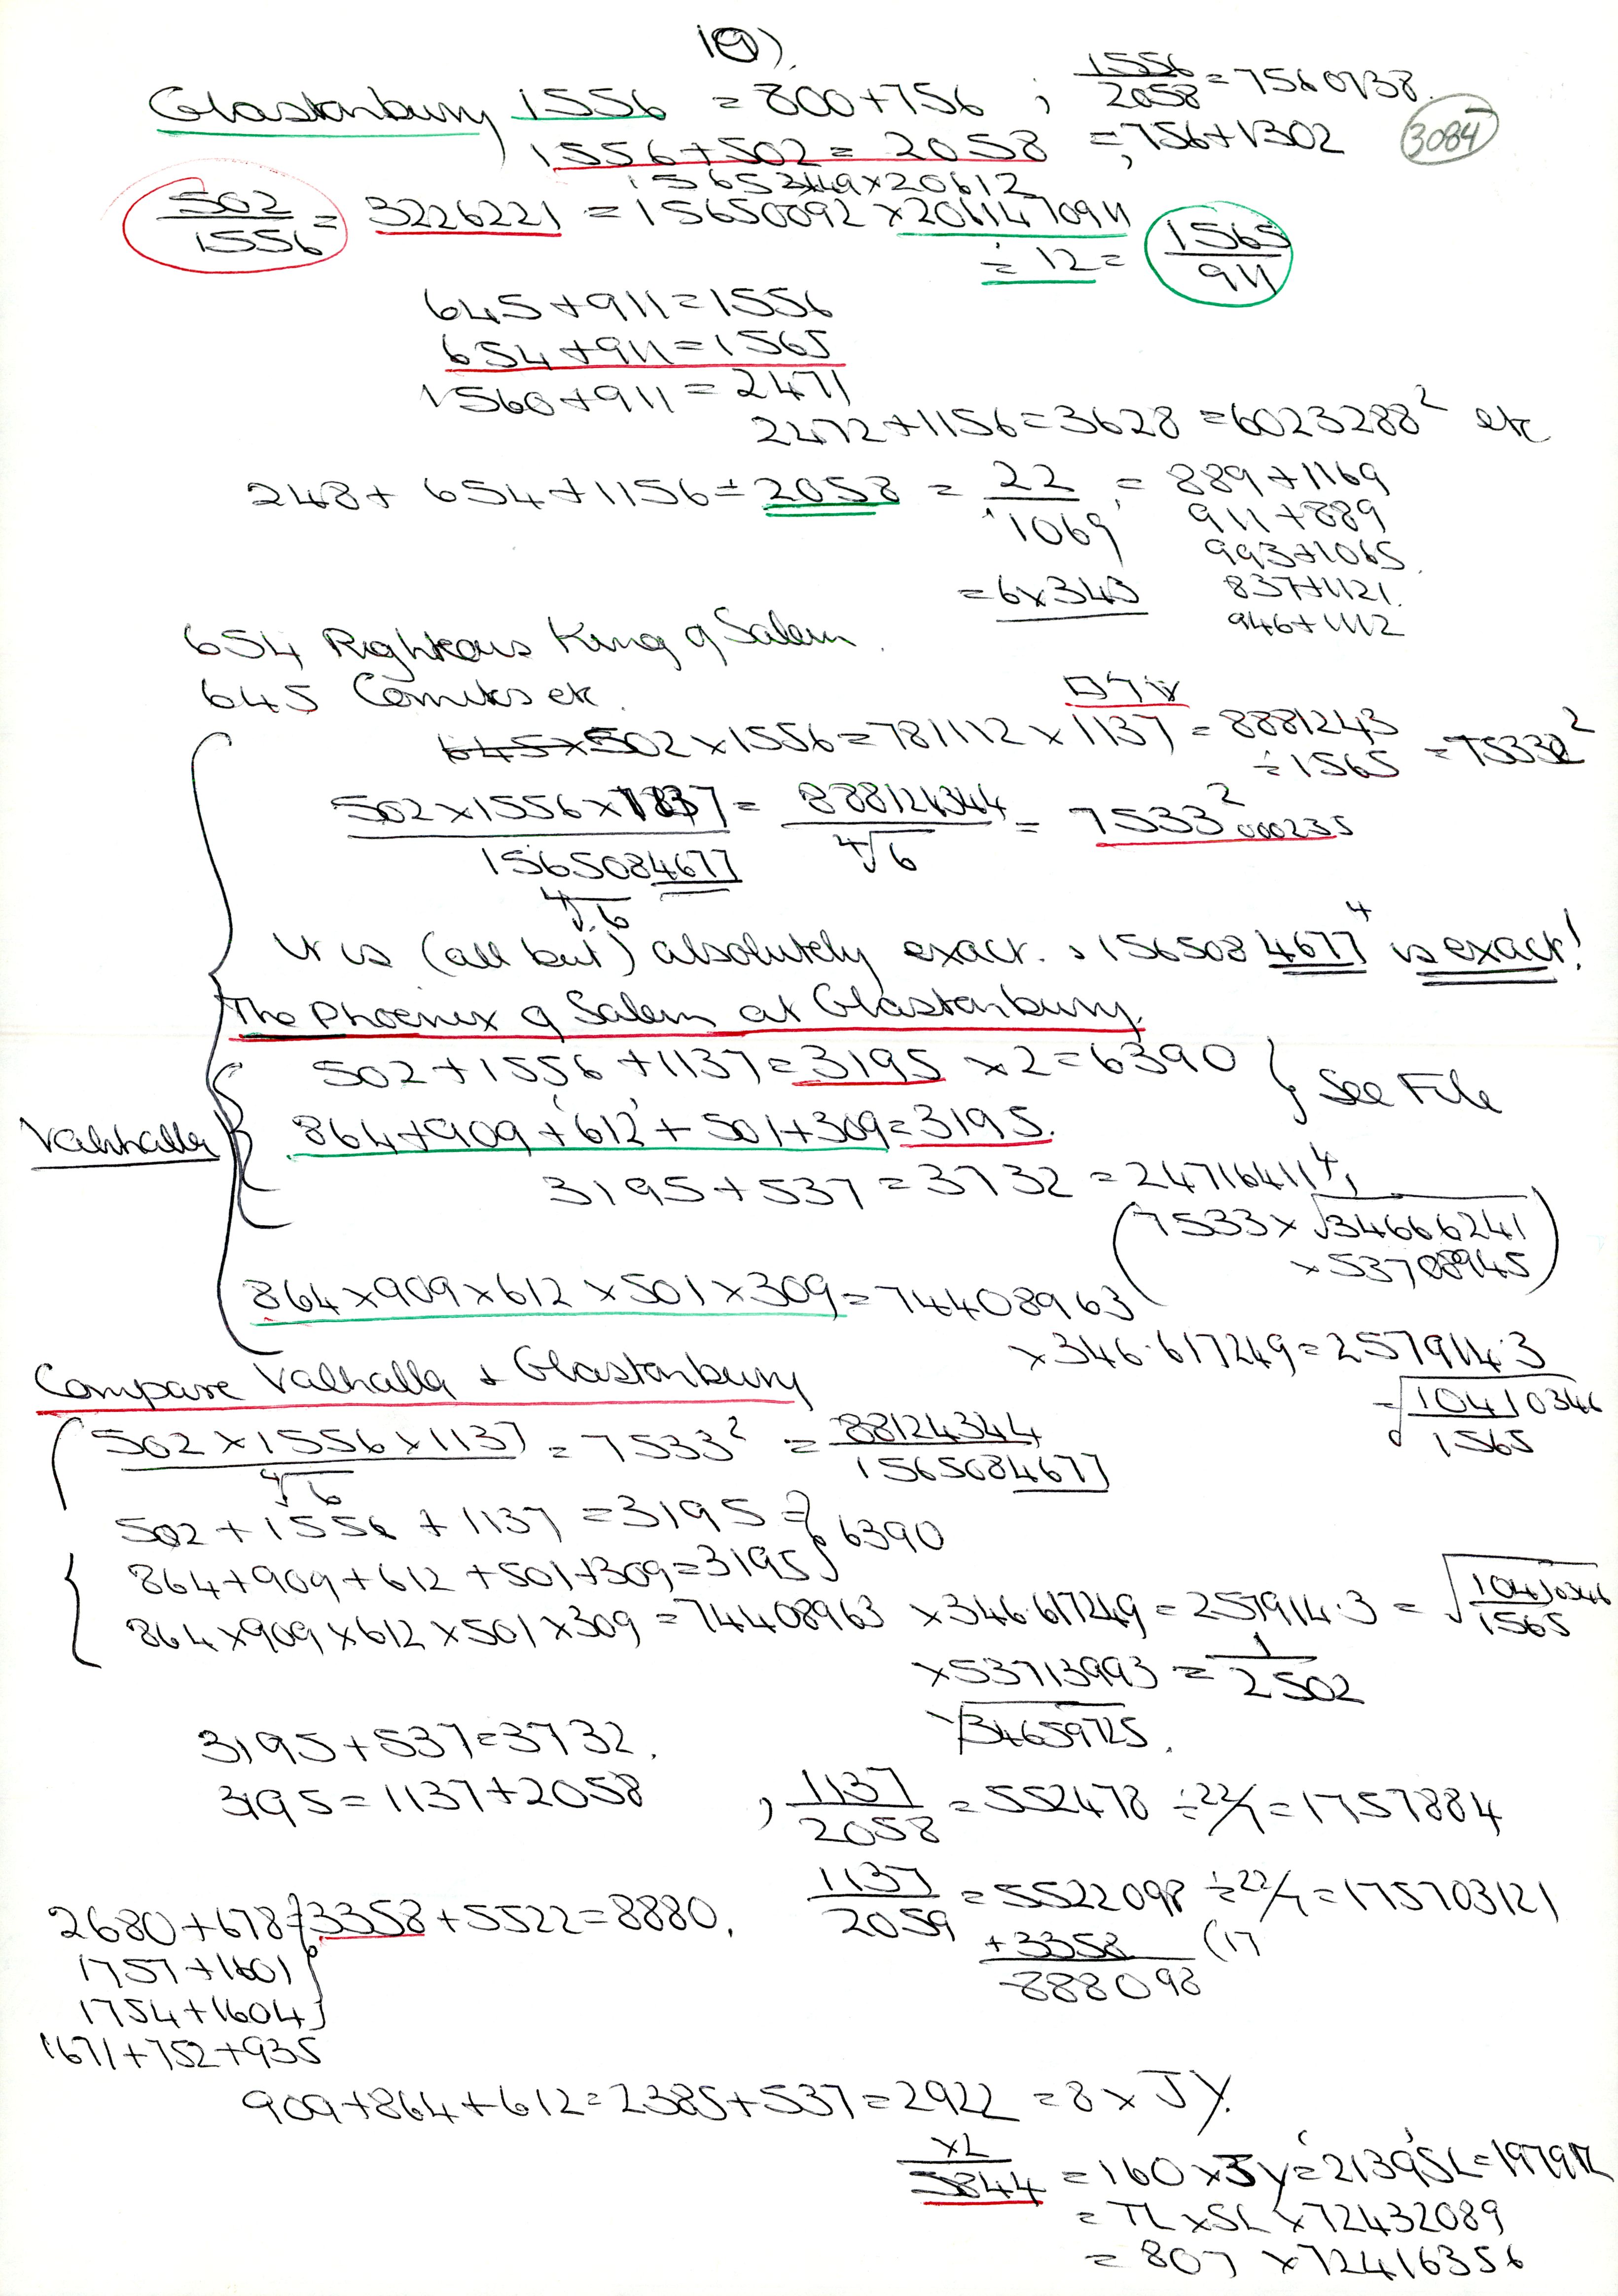 19).
Glastonbury 1556 = 800+756 ; 1556/2058 = 7560738.
3084
1556+502 = 2058 = 756+1302
15652449×20612
502/1556 = 3226221 = 15650092 × 206147094
÷ 12 = 1565/911
645+911=1556
654+911=1565
1560+911=2471
2472+1156=3628 =6023288² etc
248+ 654+1156= 2058 = 22/1069, = 889+1169
911+889
993+1065.
= 6×343 837+1121.
946+1112
654 Righteous King of Salem.
645 Comites etc.
502×1556=781112 × 1137 = 8881243 ÷1565 = 7533²
502×1556×1137 = 888124344 = 7533² 000235
1565084677 ∜6
∜6
It is (all but) absolutely exact. & 1565084677⁴ is exact!
The Phoenix of Salem at Glastonbury.
502+1556+1137=3195 ×2=6390 } See File
Valhalla
864+909+'612'+501+309=3195.
3195+537=3732=24716411⁴,
(7533×√34666241
×53708945)
864×909×612×501×309=74408963
×346·617249=257914·3
=√10410346/1565
Compare Valhalla & Glastonbury
502×1556×1137/∜6 = 7533² = 88124344/1565084677
502+1556+1137=3195 =} 6390
864+909+612+501+309=3195
864×909×612×501×309=74408963 ×346·617249=257914·3 = √10410346/1565
×53713993 = 1/2502
√34659725.
3195+537=3732.
3195=1137+2058 , 1137/2058 = 552478 ÷22/7=1757884
1137/2059 = 5522098 ÷22/7=175703121
2680+678=3358+5522=8880. +3358 (17
1757+1601 888098
1754+1604
1671+752+935
909+864+612=2385+537=2922 =8×JY.
×2
5844 =160×JY='2139'SL=19791
= TL×SL×72432089
= 807 ×72416356